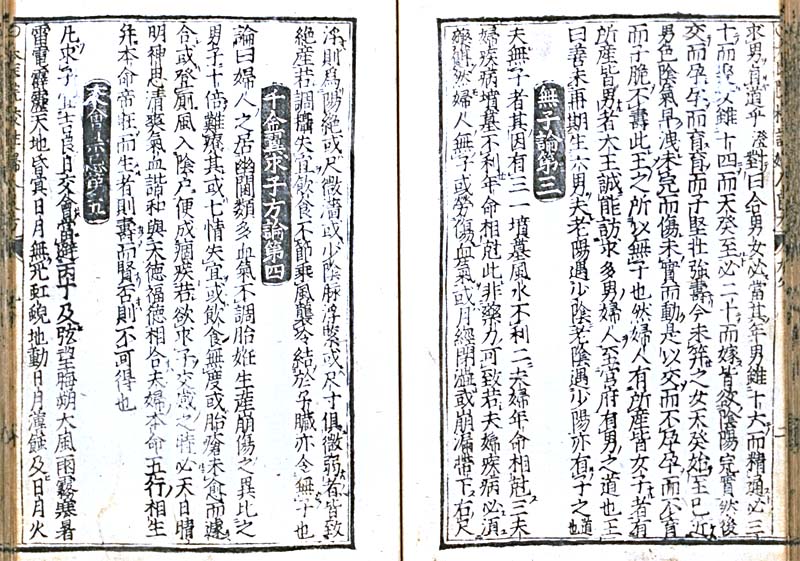 求男有道乎澄對曰合男女必當其年男雖十六而精通必三
十而娶女雖十四而天癸至必二十而嫁皆欲陰陽完實然後
交而孕孕而育育而子堅壯強壽今未笄之女天癸始至已近
男色陰氣早洩未完而傷未實而動是以交而不孕孕而不育
而子脆不壽此王之所以無子也然婦人有所產皆女子者有
所產皆男者大王誠能訪求多男婦人至宮府有男之道也王
曰善未再期生六男夫老陽遇少陰老陰遇少陽亦有子之道也
無子論第三
夫無子者其因有三一墳墓風水不利二夫婦年命相尅三夫
婦疾病墳墓不利年命相尅此非藥力可致若夫婦疾病必須
藥餌然婦人無子或勞傷血氣或月經閉澁或崩漏帶下右尺
浮則爲陽絕或尺微濇或少陰脉浮緊或尺寸俱微弱者皆致
絕產若調攝失宜飲食不節乘風襲冷結於子臟亦令無子也
千金翼求子方論第四
論曰婦人之居幽閫類多血氣不調胎妊生產崩傷之異比之
男子十倍難療其或七情失宜或飲食無度或胎瘡未愈而遽
合或登廁風入陰戶便成痼疾若欲求子交感之時必天日晴
明神思清爽氣血諧和與天德福德相合夫婦本命五行相生
幷本命帝旺而生者則壽而賢否則不可得也
交會禁忌第五
凡求子宜吉良日交會當避丙丁及弦望晦朔大風雨霧寒暑
雷電霹靂天地昏冥日月無光虹蜺地動日月薄蝕及日月火